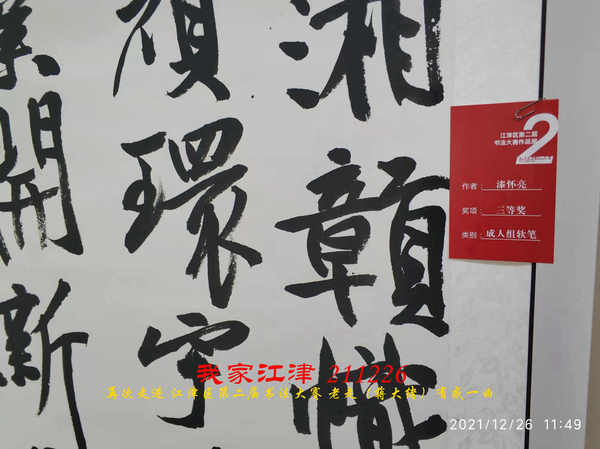 湘
贛
幟
須
環宇
業
開
新
江津区第二届
书法大赛作品展
2
作者: 漆怀亮
奖项: 三等奖
类别: 成人组软笔
我家江津 211226
再次走进 江津区第二届书法大赛 老麦（蒋大绪）有感一曲
2021/12/26 11:49